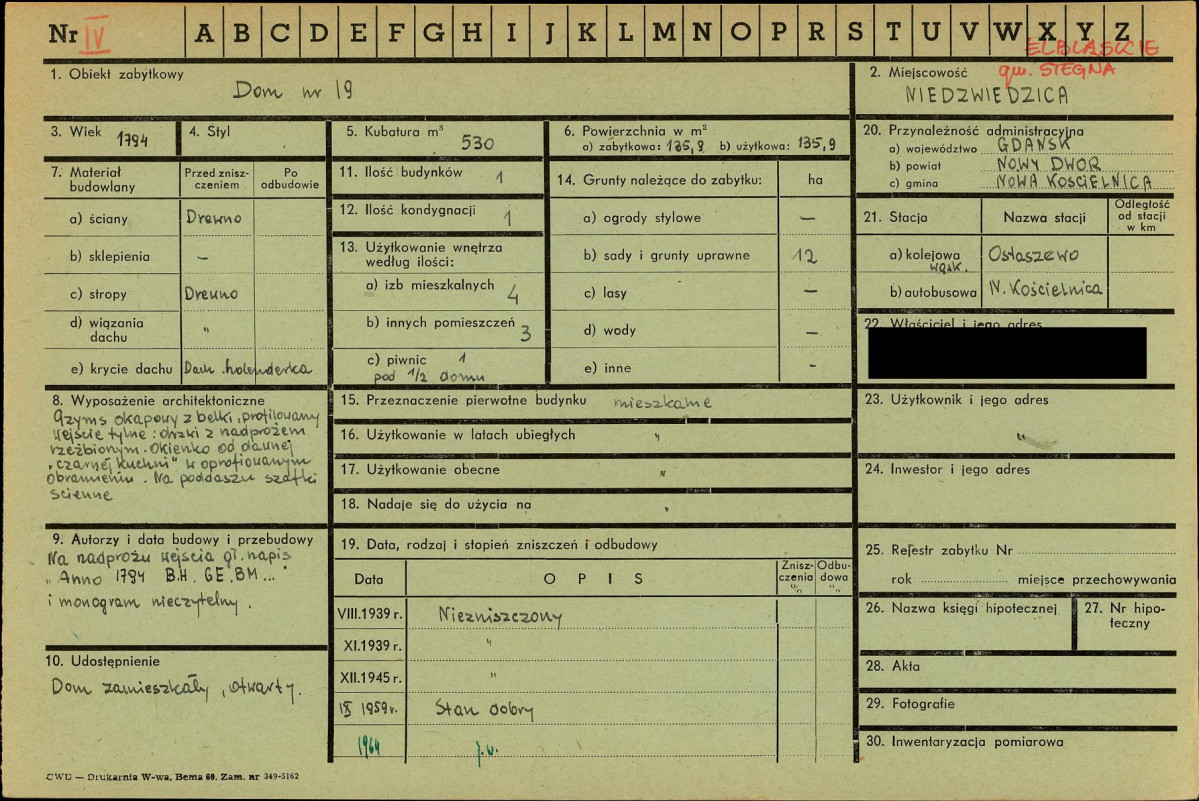 Nr IV A B C D E F G H I J K L M N O P R S T U V W X Y Z
ELBLĄSKIE
gm. STEGNA
1. Obiekt zabytkowy
Dom nr 19
2. Miejscowość
NIEDZWIEDZICA
3. Wiek 1794
4. Styl
5. Kubatura m³
530
6. Powierzchnia w m²
a) zabytkowa: 135,9 b) użytkowa: 135,9
20. Przynależność administracyjna
a) województwo GDAŃSK
b) powiat NOWY DWOR
c) gmina NOWA KOSCIELNICA
7. Materiał budowlany
Przed zniszczeniem
Po odbudowie
a) ściany Drewno
b) sklepienia –
c) stropy Drewno
d) wiązania dachu "
e) krycie dachu Dach. holenderka
11. Ilość budynków 1
12. Ilość kondygnacji 1
13. Użytkowanie wnętrza
według ilości:
a) izb mieszkalnych 4
b) innych pomieszczeń 3
c) piwnic 1
pod 1/2 domu
14. Grunty należące do zabytku: ha
a) ogrody stylowe –
b) sady i grunty uprawne 12
c) lasy –
d) wody –
e) inne -
21. Stacja
Nazwa stacji
Odległość
od stacji
w km
a) kolejowa Ostaszewo
wąsk.
b) autobusowa N. Kościelnica
22. Właściciel i jego adres
8. Wyposażenie architektoniczne
Gzyms okapowy z belki, profilowany
wejście tylne: drzki z nadprożem
rzeźbionym. Okienko od dawnej
"czarnej kuchni" w oprofilowanym
obramieniu. Na poddaszu szafki
scienne
15. Przeznaczenie pierwotne budynku mieszkalne
16. Użytkowanie w latach ubiegłych "
17. Użytkowanie obecne "
18. Nadaje się do użycia na "
23. Użytkownik i jego adres
"
24. Inwestor i jego adres
9. Autorzy i data budowy i przebudowy
Na nadprożu wejścia gł. napis
"Anno 1794 B.H. GE. BM..."
i monogram nieczytelny.
19. Data, rodzaj i stopień zniszczeń i odbudowy
Data
O P I S
Zniszczenia %
Odbudowa %
VIII.1939 r. Niezniszczony
XI.1939 r. "
XII.1945 r. "
IX 1959 r. Stan dobry
1964 j.w.
25. Rejestr zabytku Nr
rok miejsce przechowywania
26. Nazwa księgi hipotecznej
27. Nr hipoteczny
10. Udostępnienie
Dom zamieszkały, otwarty.
28. Akta
29. Fotografie
30. Inwentaryzacja pomiarowa
CWD — Drukarnia W-wa, Bema 60. Zam. nr 349-5162